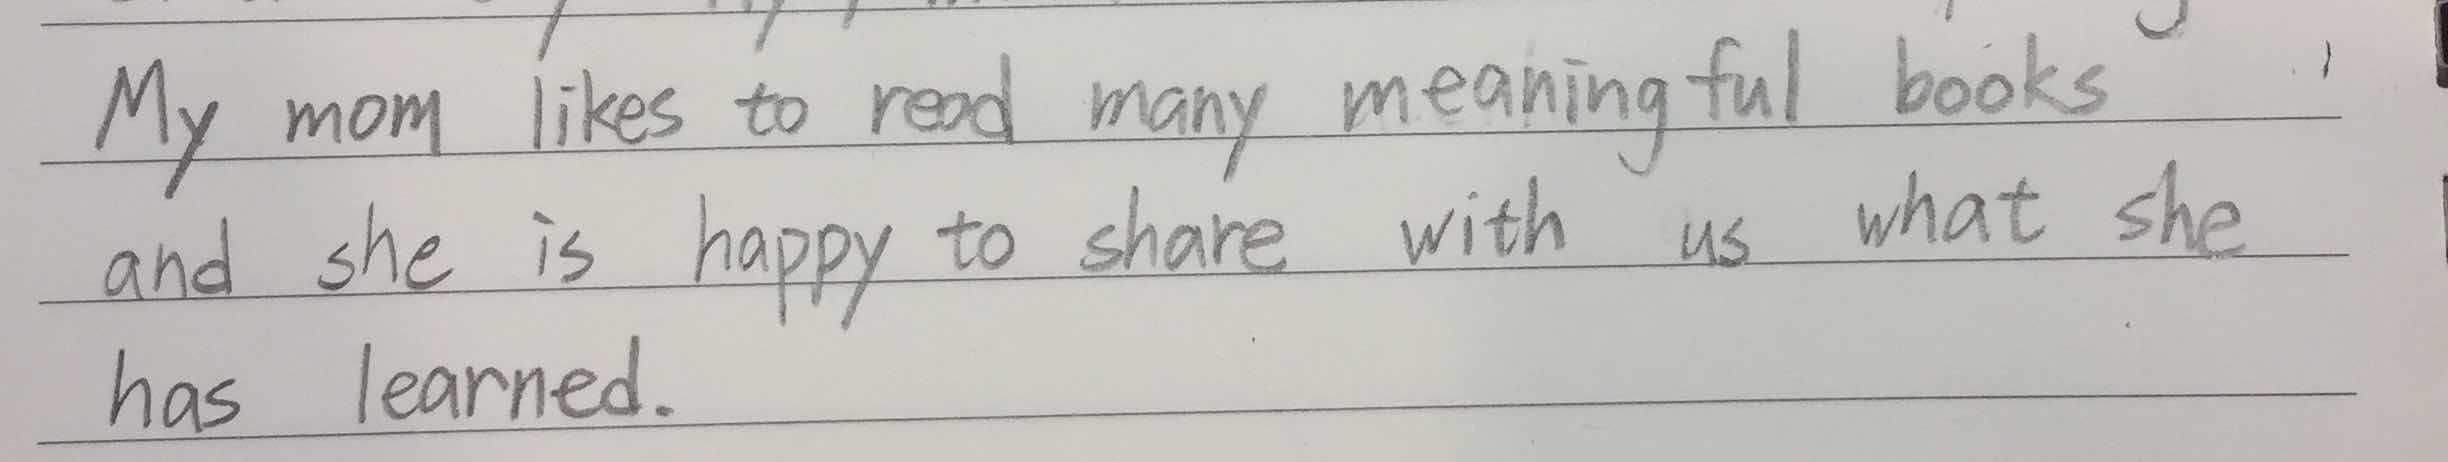 My mom likes to read many meaningful books
and she is happy to share with us what she
has learned.